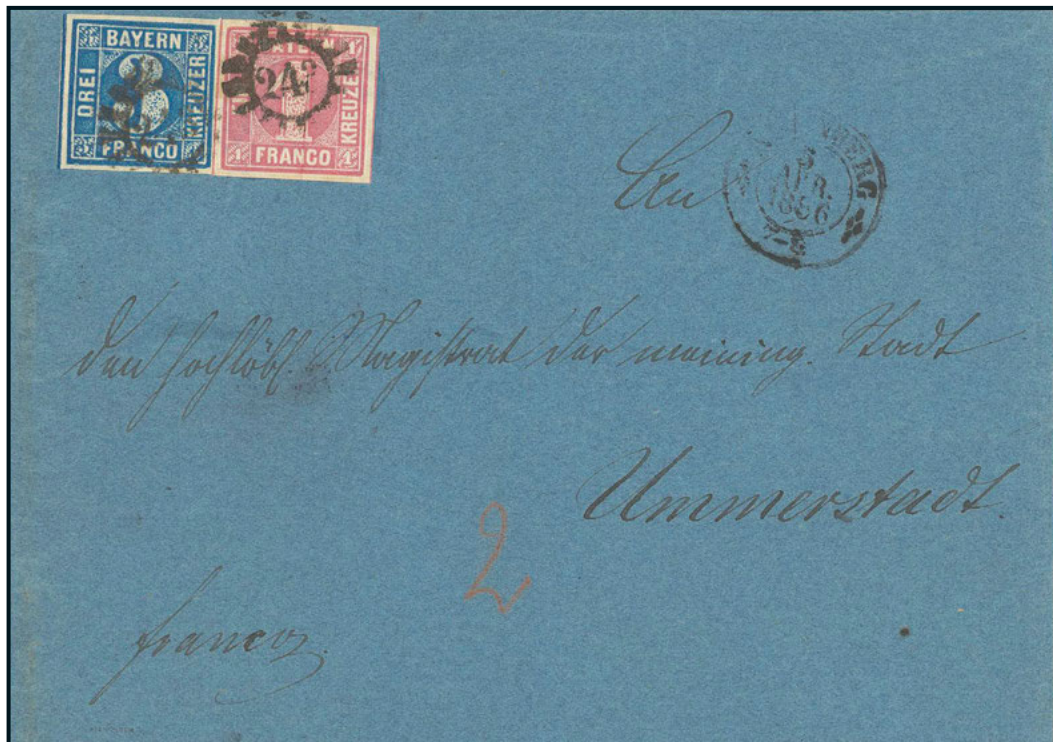 BAYERN
DREI
3
KREUZER
FRANCO
1
KREUZER
FRANCO
1
1
24
An
APR.
1856
7-8
den hochlöbl. Magistrat der meining. Stadt
Ummerstadt.
2
franco